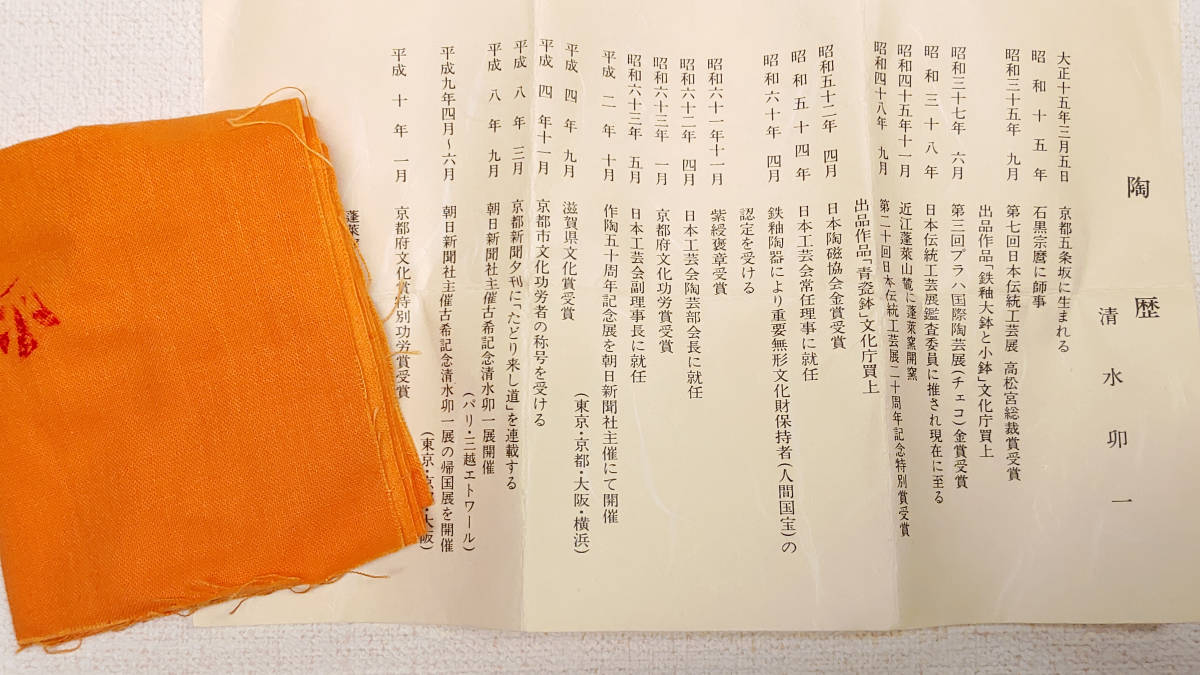 陶歴
清水卯一
大正十五年三月五日 京都五条坂に生まれる
昭和十五年 石黒宗麿に師事
昭和三十五年 九月 第七回日本伝統工芸展 高松宮総裁賞受賞
出品作品「鉄釉大鉢と小鉢」文化庁買上
昭和三十七年 六月 第三回プラハ国際陶芸展(チェコ)金賞受賞
昭和三十八年 日本伝統工芸展鑑査委員に推され現在に至る
昭和四十五年十一月 近江蓬萊山麓に蓬萊窯開窯
昭和四十八年 九月 第二十回日本伝統工芸展二十周年記念特別賞受賞
出品作品「青瓷鉢」文化庁買上
昭和五十二年 四月 日本陶磁協会金賞受賞
昭和五十四年 日本工芸会常任理事に就任
昭和六十年 四月 鉄釉陶器により重要無形文化財保持者(人間国宝)の
認定を受ける
昭和六十一年十一月 紫綬褒章受賞
昭和六十二年 四月 日本工芸会陶芸部会長に就任
昭和六十三年 一月 京都府文化功労賞受賞
昭和六十三年 五月 日本工芸会副理事長に就任
平成二年 十月 作陶五十周年記念展を朝日新聞社主催にて開催
(東京・京都・大阪・横浜)
平成四年 九月 滋賀県文化賞受賞
平成四年十一月 京都市文化功労者の称号を受ける
平成八年 三月 京都新聞夕刊に「たどり来し道」を連載する
平成八年 九月 朝日新聞社主催古希記念清水卯一展開催
(パリ・三越エトワール)
平成九年四月~六月 朝日新聞社主催古希記念清水卯一展の帰国展を開催
(東京・京都・大阪)
平成十年 一月 京都府文化賞特別功労賞受賞
蓬萊窯